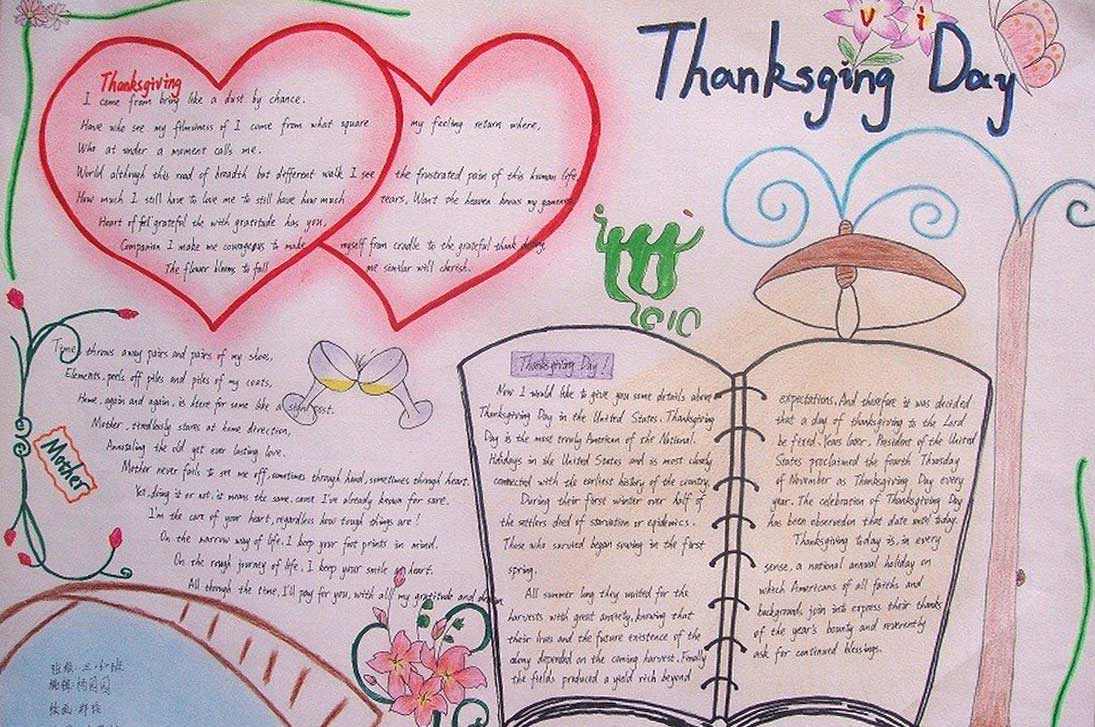 Thanksging Day
vi
Thanksgiving
I come from bring like a dust by chance.
Have who see my filmuness of I come from what square my feeling return where,
Who at under a moment calls me.
World although this road of breadth but different walk I see the frustrated pain of this human life
How much I still have to love me to still have how much tears, Want the heaven knows my
Heart of feel grateful the with gratitude has you,
Companion I make me courageous to made myself from cradle to the grateful thank
The flower blooms to fall me similar will cherish.
2010
Time, throws away pairs and pairs of my shoes,
Elements, peels off piles and piles of my coats,
Home, again and again, is there for some like a sign post.
Mother, tirelessly stares at home direction,
Annotaling the old yet ever lasting love.
Mother never fails to see me off, sometimes through hand, sometimes through heart.
Yet, doing it or not, it means the same, cause I've already known for sure.
I'm the care of your heart, regardless how tough things are!
On the narrow way of life, I keep your foot prints in mind.
On the rough journey of life, I keep your smile in heart.
All through the time, I'll pay for you, with all my gratitude and
Mother
Thanksgiving Day!
Now I would like to give you some details above
Thanksgiving Day in the United States. Thanksgiving
Day is the most truely American of the National.
Holidays in the United States and is most closely
connected with the earliest history of the country.
During their first winter over half of
the settlers died of starvation or epidemics.
Those who survied began sowing in the first
spring.
All summer long they waited for the
harvests with great anxiety, knowing that
their lives and the future existence of the
olony depended on the coming harvest. Finally
the fields produced a yield rich beyond
expectations. And therefore it was decided
that a day of thanksgiving to the Lord
be fixed. Years later, President of the United
States proclaimed the fourth Thursday
of November as Thanksgiving Day every
year. The celebration of Thanksgiving Day
has been observeden that date until today.
Thanksgiving today is, in every
sense, a national annual holiday on
which Americans of all faiths and
backgrounds join into express their thanks
of the year's bounty and reverently
ask for continued blessings.